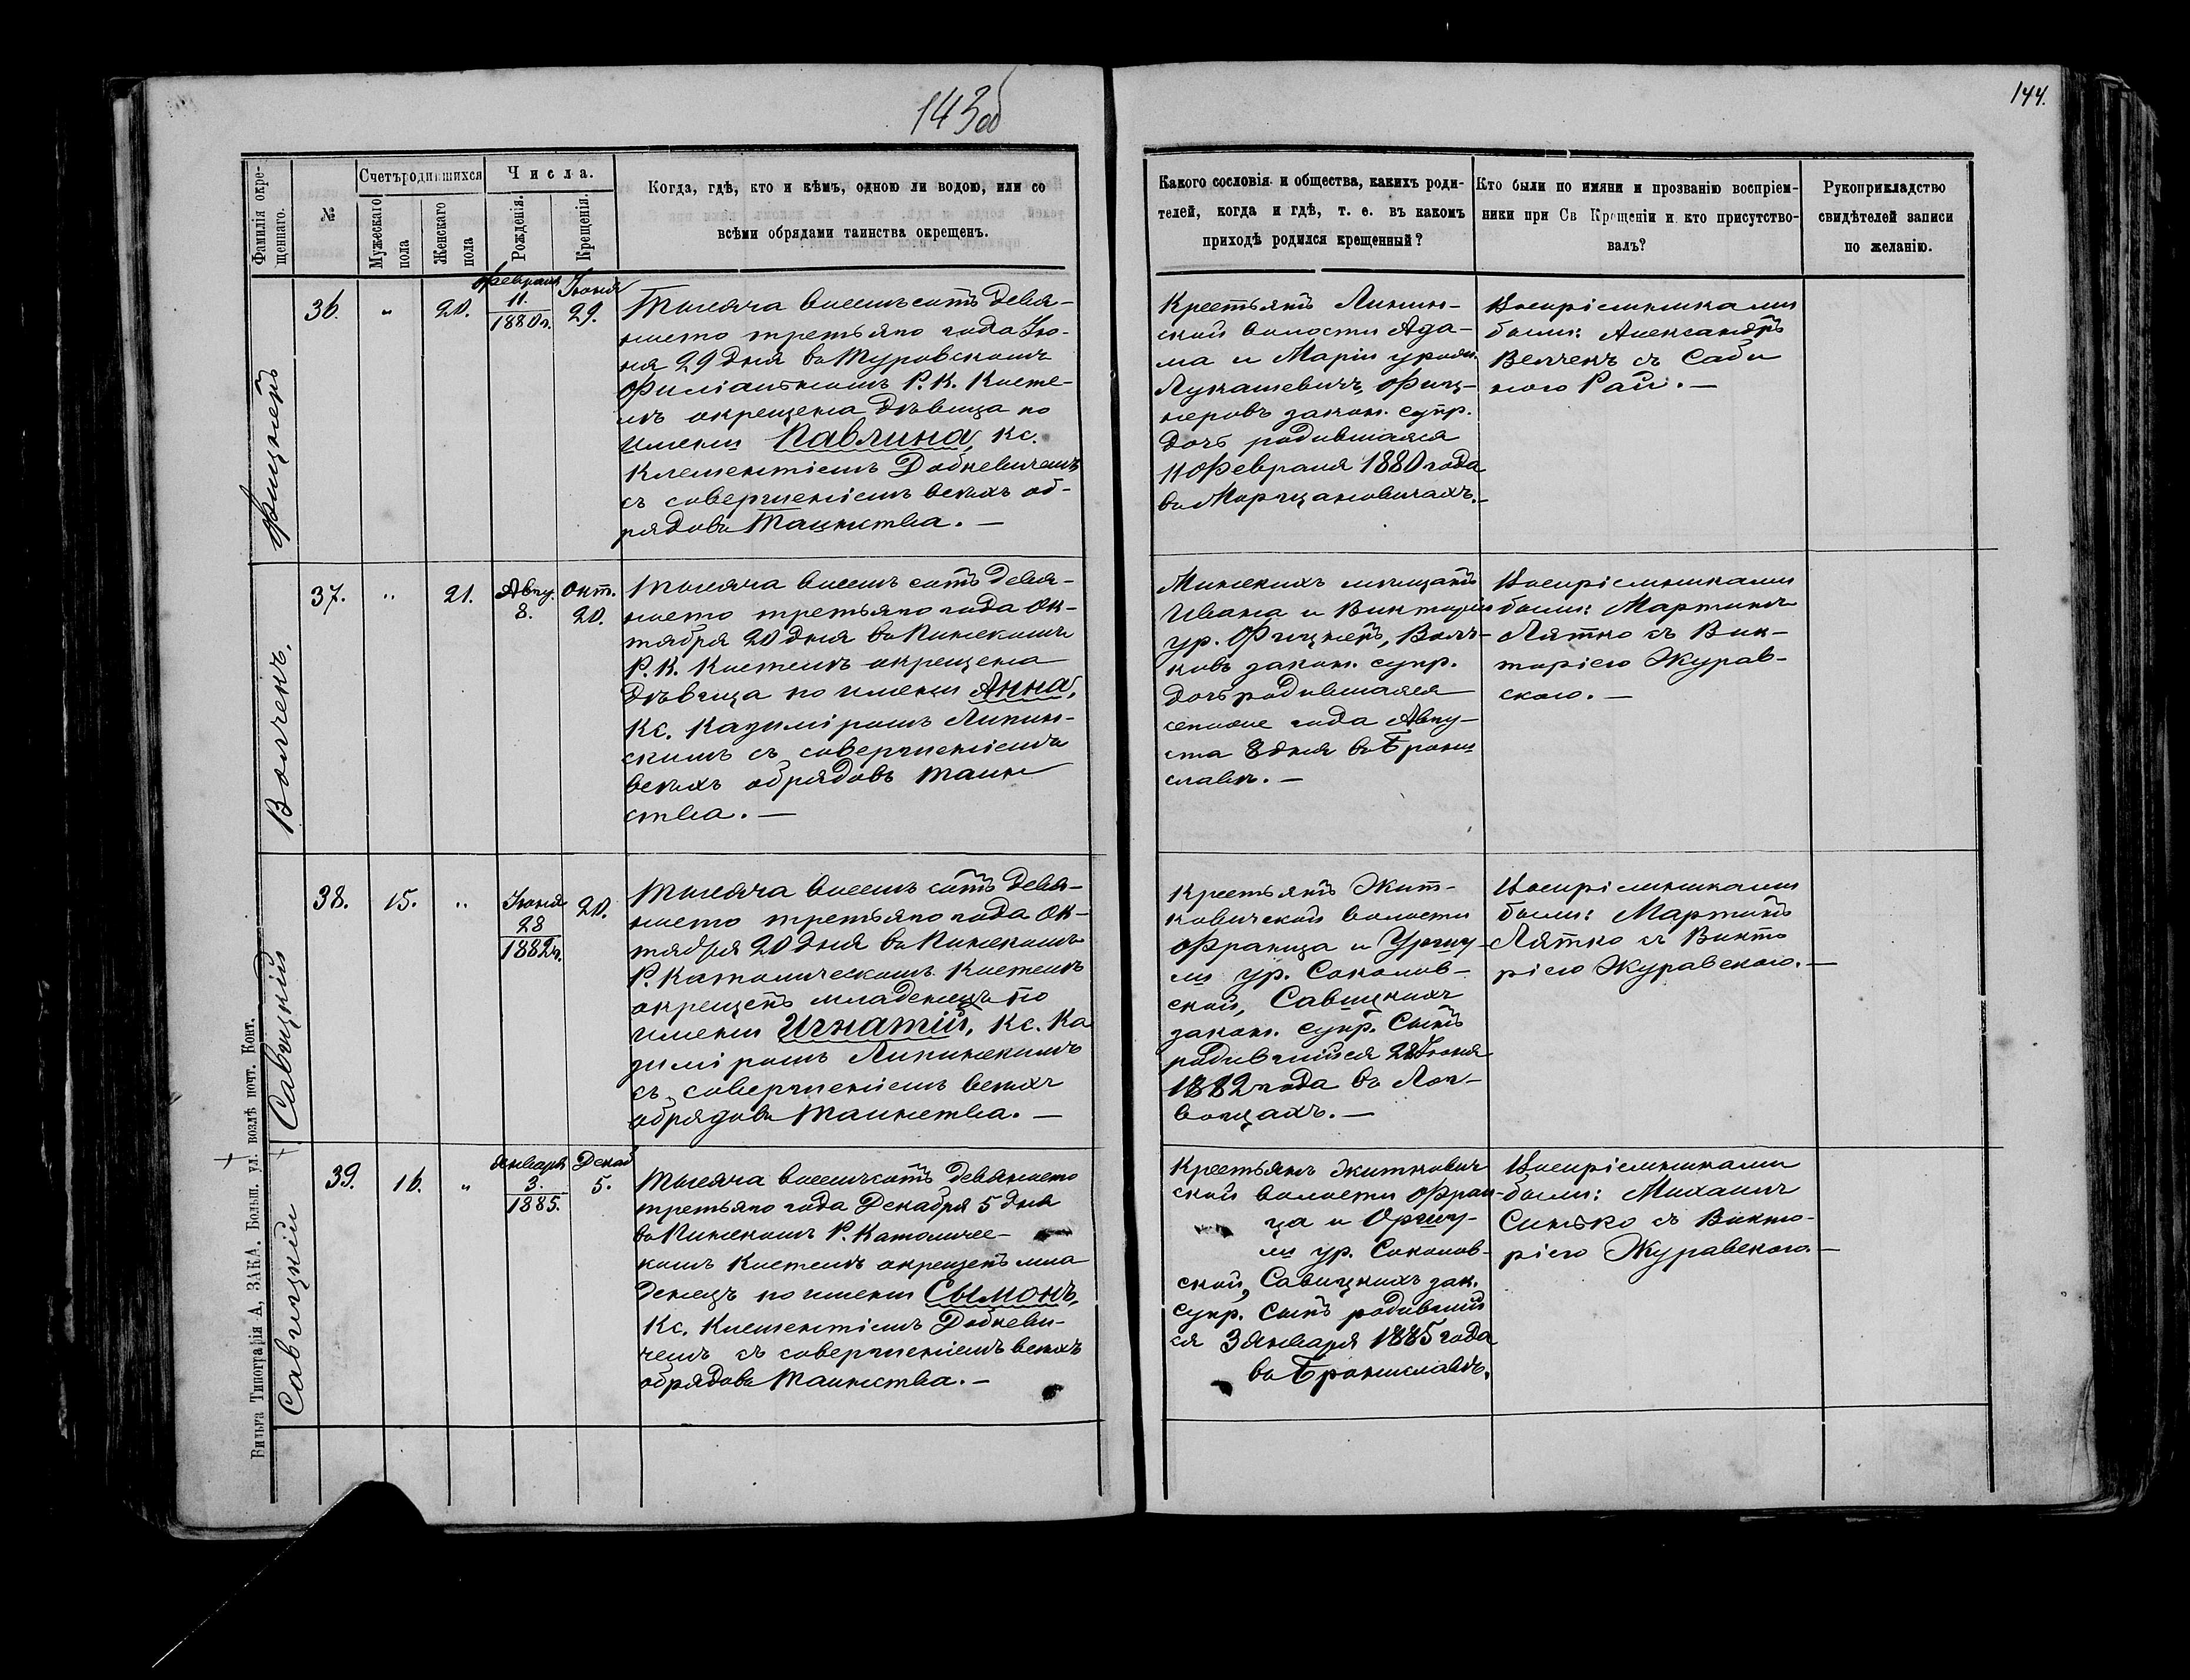 143об
144.
Фамилія окре-
щеннаго.
№
Счетъ родившихся
Мужескаго
пола
Женскаго
пола
Числа.
Рожденія.
Крещенія.
Когда, гдѣ, кто и кѣмъ, одною ли водою, или со
всѣми обрядами таинства окрещенъ.
Какого сословія и общества, какихъ роди-
телей, когда и гдѣ, т. е. въ какомъ
приходѣ родился крещенный?
Кто были по имяни и прозванію воспріем-
ники при Св Крещеніи и кто присутство-
валъ?
Рукоприкладство
свидѣтелей записи
по желанію.
Фицнеръ
36.
"
20.
Февраля
11.
1880г.
Іюня
29.
Тысяча восемьсотъ девя-
носто третьяго года Ію-
ня 29 дня въ Туровскомъ
Филіальномъ Р. К. Косте-
лѣ окрещена дѣвица по
имени Павлина, Кс.
Клементіемъ Добкевичемъ
съ совершеніемъ всѣхъ об-
рядовъ Таинства. —
Крестьянъ Ленин-
ской волости Ада-
ма и Маріи урожд.
Лукашевичъ, Фиц-
неровъ закон. супр.
дочь родившаяся
11 Февраля 1880 года
въ Морщановичахъ. —
Воспріемниками
были: Александръ
Велчекъ съ Саби
ною Рай. —
Волчекъ.
37.
"
21.
Авгу.
8.
Окт.
20.
Тысяча восемь сотъ девя-
носто третьяго года Ок-
тября 20 дня въ Пинскомъ
Р. К. Костелѣ окрещена
дѣвица по имени Анна,
Кс. Казиміромъ Липин-
скимъ съ совершеніемъ
всѣхъ обрядовъ таин
ства. —
Минскихъ мѣщанъ
Ивана и Викторіи
ур. Фицнеръ, Волч-
ковъ закон. супр.
дочь родившаяся
сего же года Авгу-
ста 8 дня въ Брони
славѣ. —
Воспріемниками
были: Мартинъ
Лятко съ Вик-
торіею Журав-
скою. —
Савицкій
38.
15.
"
Іюня
28
1882г.
20.
Тысяча восемь сотъ девя-
носто третьяго года Ок-
тября 20 дня въ Пинскомъ
Р. Католическомъ Костелѣ
окрещенъ младенецъ по
имени Игнатій, Кс. Ка
зиміромъ Липинскимъ
съ совершеніемъ всѣхъ
обрядовъ Таинства. —
Крестьянъ Жит-
ковичской волости
Франца и Уршу-
ли ур. Соколов-
ской, Савицкихъ
закон. супр. Сынъ
родившійся 28 Іюня
1882 года въ Лог-
вощахъ. —
Воспріемниками
были: Мартинъ
Лятко съ Викто
ріею Журавскою. —
Савицкій
39.
16.
"
Января
3.
1885.
Декаб
5.
Тысяча восемьсотъ девяносто
третьяго года Декабря 5 дня
въ Пинскомъ Р. Католичес-
комъ Костелѣ окрещенъ мла
денецъ по имени Сымонъ,
Кс. Клементіемъ Добкеви-
чемъ съ совершеніемъ всѣхъ
обрядовъ Таинства. —
Крестьянъ Житкович
ской волости Фран-
ца и Оршу-
ли ур. Соколов-
ской, Савицкихъ зак.
супр. Сынъ родивший
ся 3 Января 1885 года
въ Брониславѣ.
Воспріемниками
были: Михаилъ
Синько съ Викто-
ріею Журавскою. —
Вильна Типографія А, ЗАКА. Больш. ул. возлѣ почт. Конт.